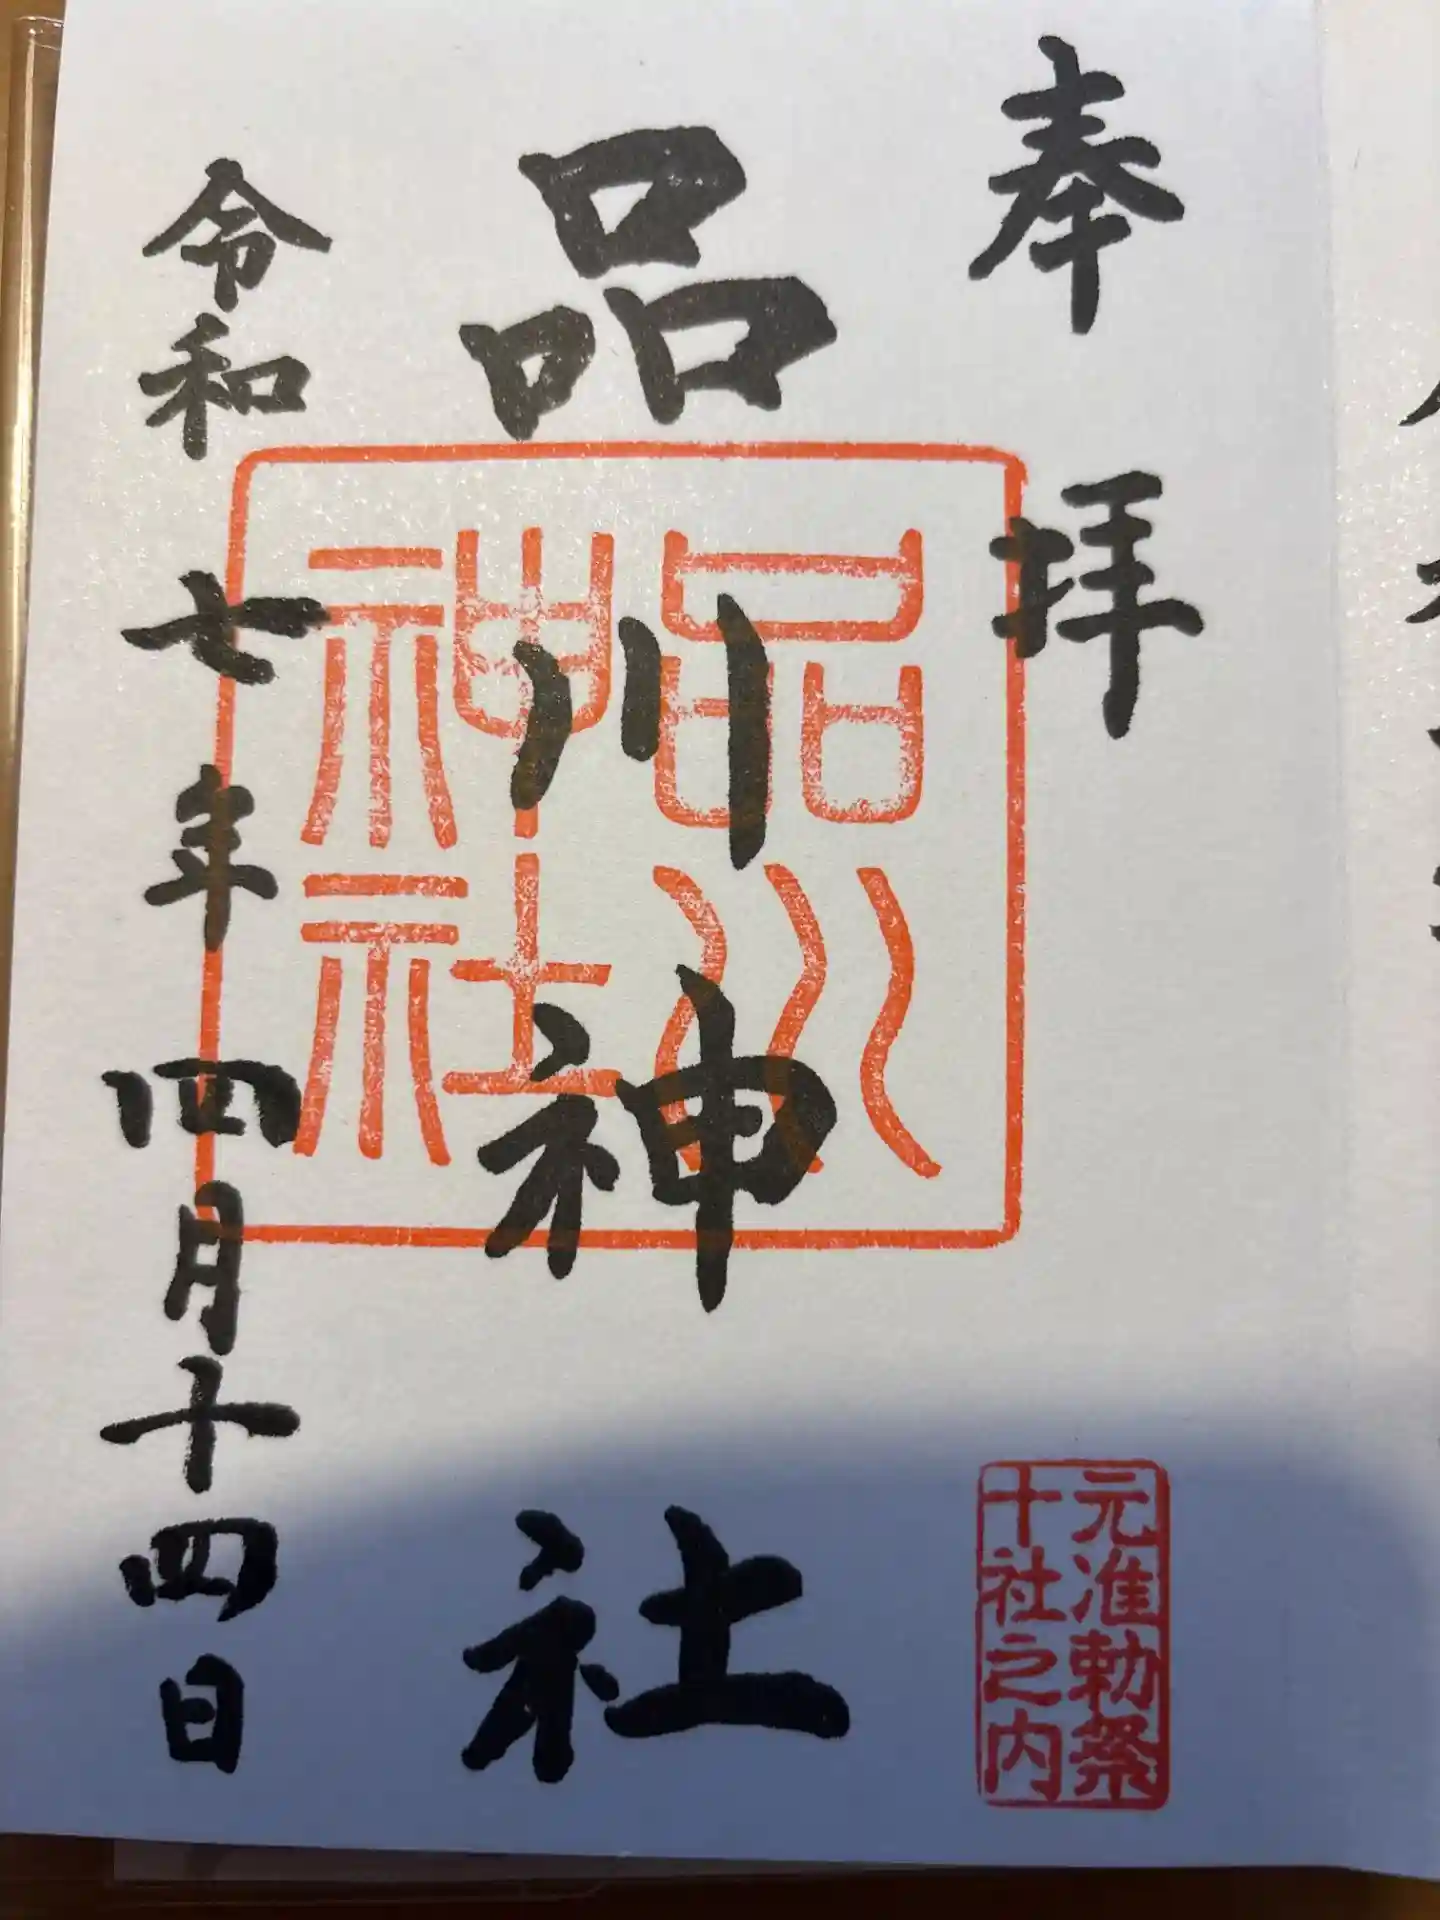 奉拝
元准勅祭
十社之内
品川神社
品川
神社
令和七年四月十四日